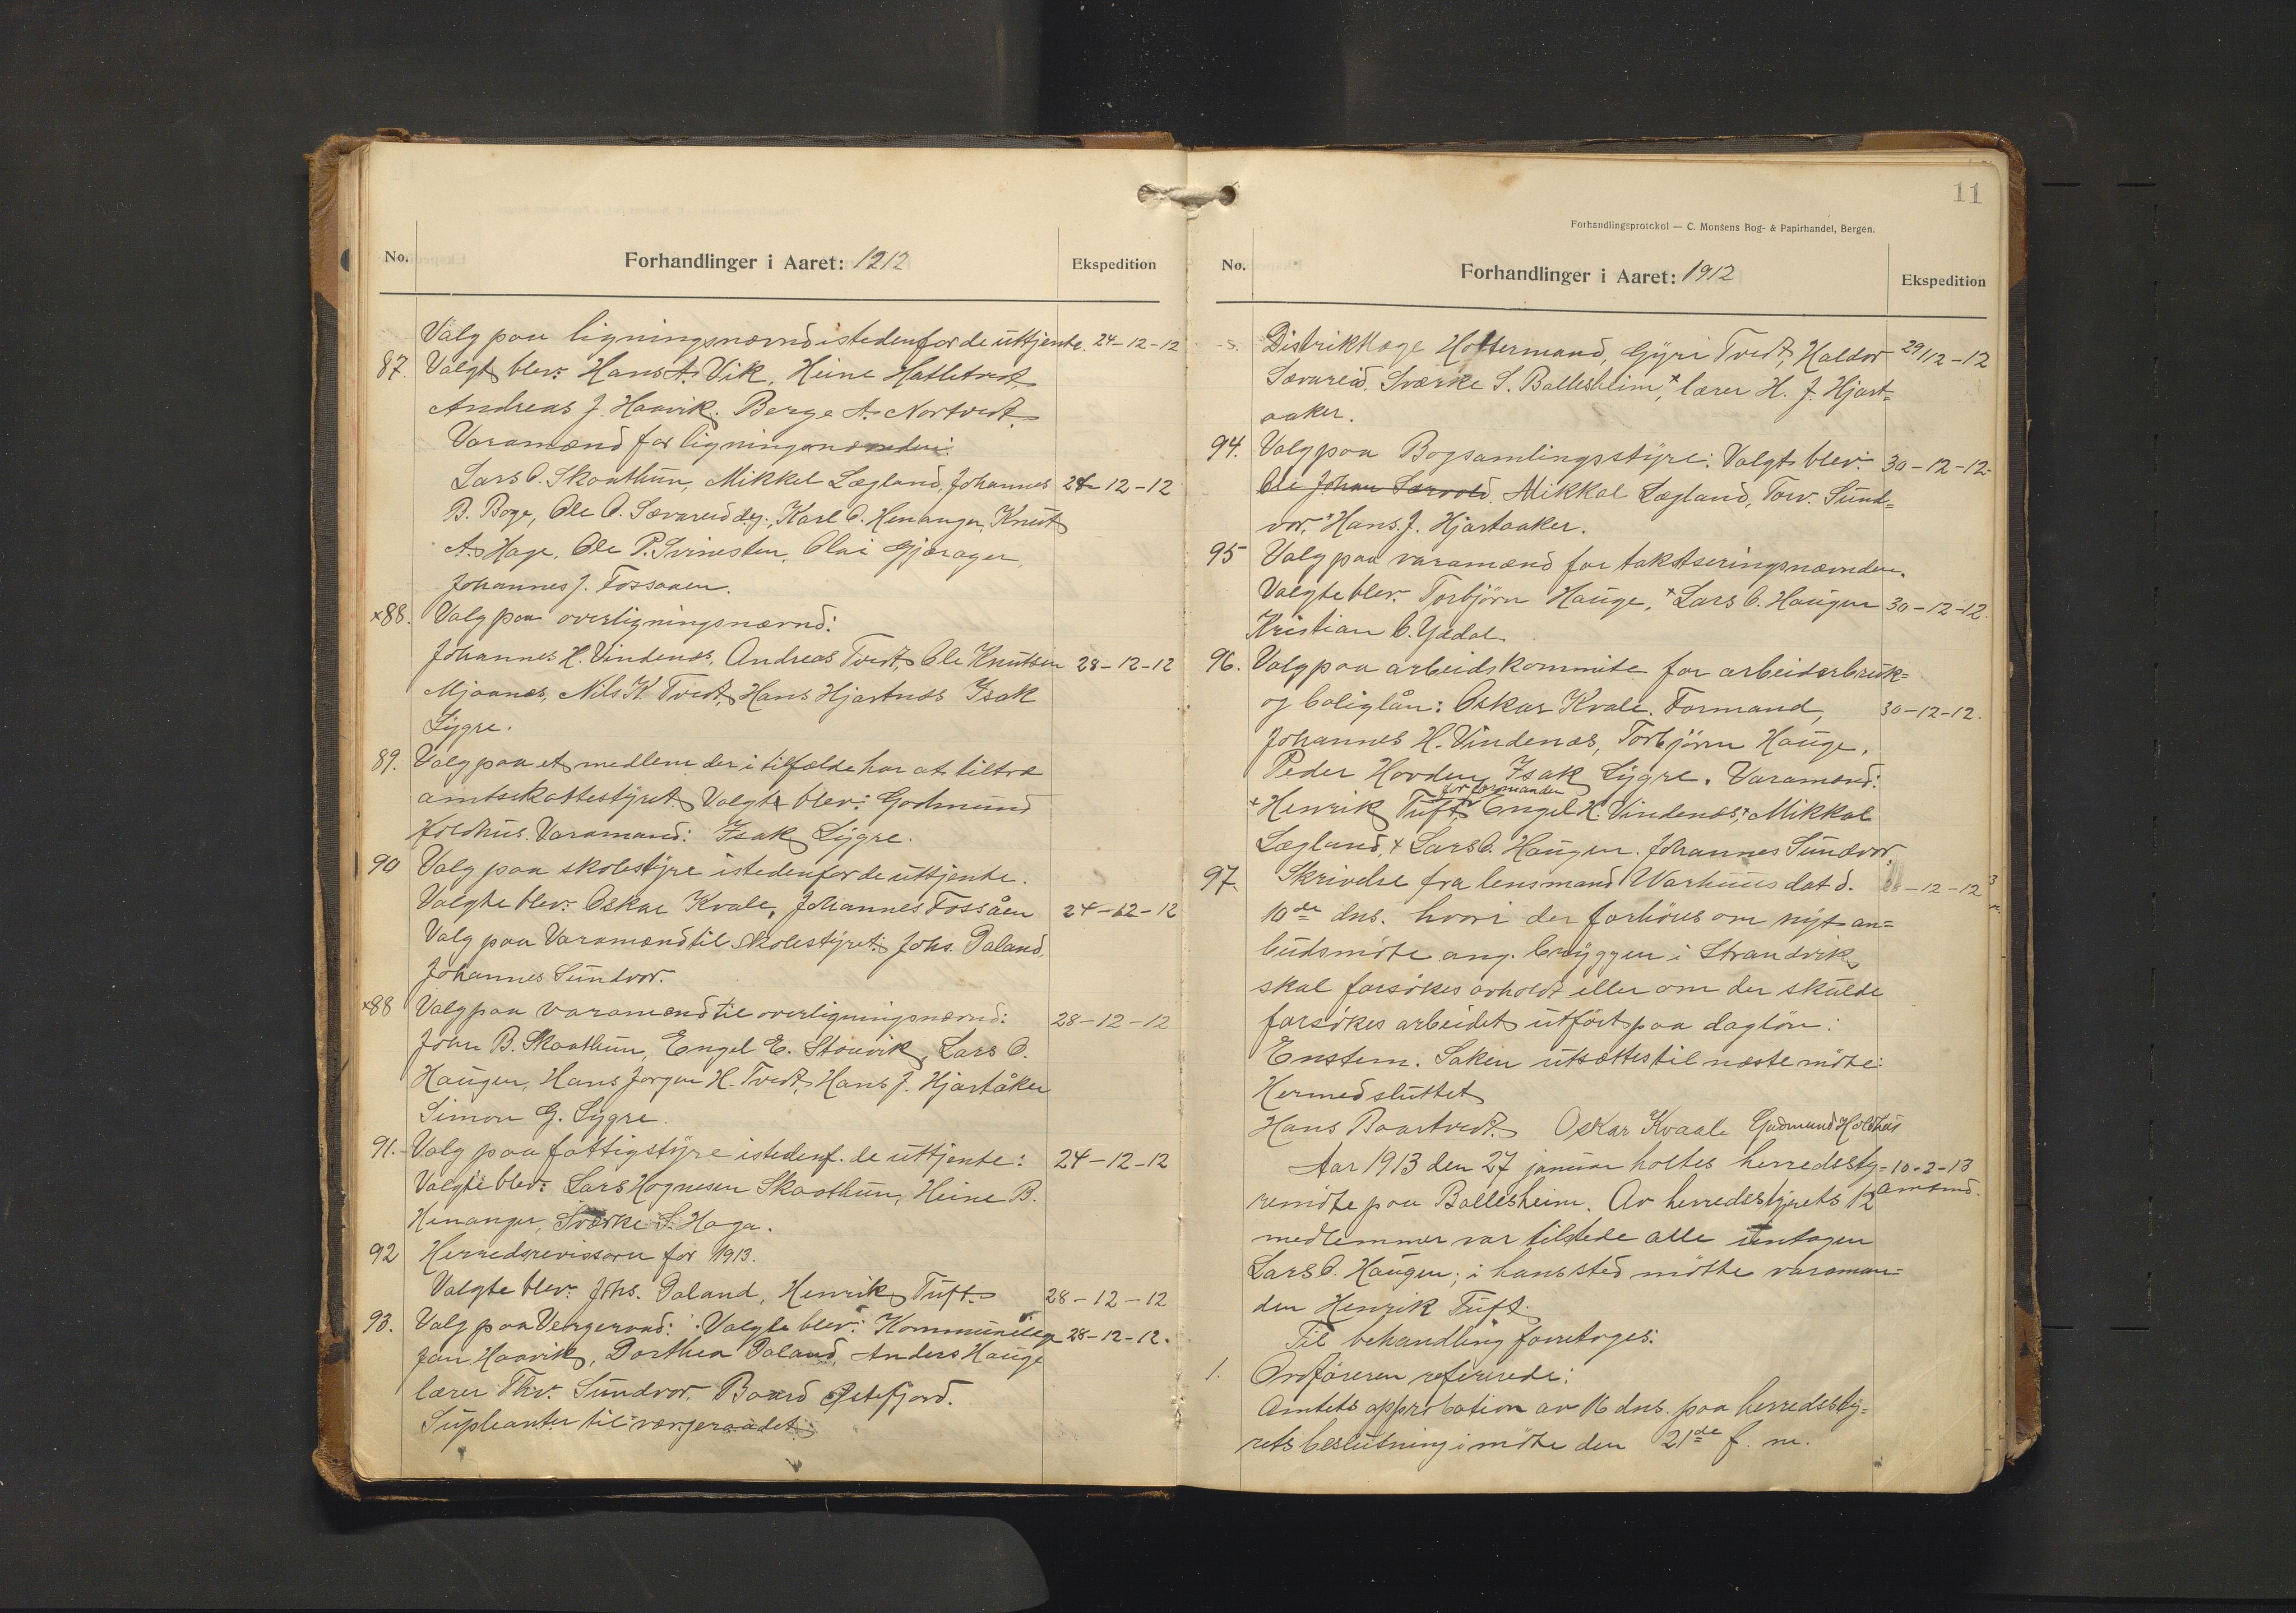 No.
Forhandlinger i Aaret: 1212
Ekspedition
Valg paa ligningsnævnd istedenfor de uttjente. 24-12-12
87. Valgt blev: Hans A. Vik, Heine Hatletvedt,
Andreas J. Haavik. Berge A. Nortvedt.
Varamænd for ligningsnævnden:
Lars O. Skaathun, Mikkel Lægland, Johannes 28-12-12
B. Boge, Ole O. Sævareid dy., Karl O. Henanger, Knut
A. Hage, Ole P. Svinesten, Olai Gjerager,
Johannes J. Fossaaen.
x88. Valg paa overligningsnævnd:
Johannes H. Vindenæs, Andreas Tvedt, Ole Knutsen 28-12-12
Mjaanes, Nils K. Tvedt, Hans Hjartnæs Isak
Lygre.
89. Valg paa et medlem der i tilfælde har at tiltræ
amtsskattestyret. Valgt blev: Godmund
Holdhus. Varamand: Isak Lygre.
90 Valg paa skolestyre istedenfor de uttjente.
Valgte blev: Oskar Kvale, Johannes Fossåen 24-12-12
Valg paa Varamænd til skolestyret: Johs. Daland,
Johannes Sundvor.
x88 Valg paa varamænd til overligningsnævnd: 28-12-12
John B. Skaathun, Engel E. Stouvik, Lars O.
Haugen, Hans Jørgen H. Tvedt, Hans J. Hjartåker
Simon G. Lygre.
91. Valg paa fattigstyre istedenf. de uttjente: 24-12-12
Valgte blev: Lars Hognesen Skaathun, Heine B.
Henanger, Sværke S. Haga.
92 Herredsrevisorer for 1913.
Valgte blev: Johs. Daland, Henrik Tuft. 28-12-12
93. Valg paa Vergeraad: Valgte blev: Kommunelæge 28-12-12.
Jan Haavik, Dorthea Daland, Anders Hauge
lærer Thv. Sundvor, Baard Østefjord.
Supleanter til værgeraadet:
11
Forhandlingsprotokol — C. Monsens Bog- & Papirhandel, Bergen.
No.
Forhandlinger i Aaret: 1912
Ekspedition
Distriktlæge Holtermand, Gyri Tvedt, Haldor 29/12-12
Sævareid, Sværke S. Ballesheim, x lærer H. J. Hjart=
aaker.
94. Valg paa Bogsamlingsstyre: Valgt blev: 30-12-12
Ole Johan Særvold, Mikkal Lægland, Torv. Sund=
vor, x Hans J. Hjartaaker.
95 Valg paa varamænd for takstseringsnævnden.
Valgte blev: Torbjørn Hauge, x Lars O. Haugen 30-12-12.
Kristian O. Yddal.
96. Valg paa arbeidskommite for arbeiderbruk=
og boliglån: Oskar Kvale, Formand, 30-12-12.
Johannes H. Vindenæs, Torbjørn Hauge,
Peder Hovden, Isak Lygre. Varamænd:
for formanden
x Henrik Tuft, Engel H. Vindenæs, x Mikkal
Lægland, x Lars O. Haugen. Johannes Sundvor,
97. Skrivelse fra lensmand Warhuus dat d. -12-12
10de dns. hvori der forhøres om nyt an=
budsmøte ang. bryggen i Strandvik
skal forsøkes avholdt eller om der skulde
forsøkes arbeidet utført paa dagløn:
Enstem. Saken utsættes til næste møte:
Hermed sluttet
Hans Baartvedt. Oskar Kvaale Gudmund Holdhus
Aar 1913 den 27 januar holtes herredssty= 10-2-13
remøte paa Ballesheim. Av herredsstyrets 12 amtmd.
medlemmer var tilstede alle untagen
Lars O. Haugen; i hans sted møtte varaman=
den Henrik Tuft.
Til behandling foretoges:
1. Ordføreren refererede:
Amtets approbation av 16 dns. paa herredssty=
rets beslutning i møte den 21de f. m.